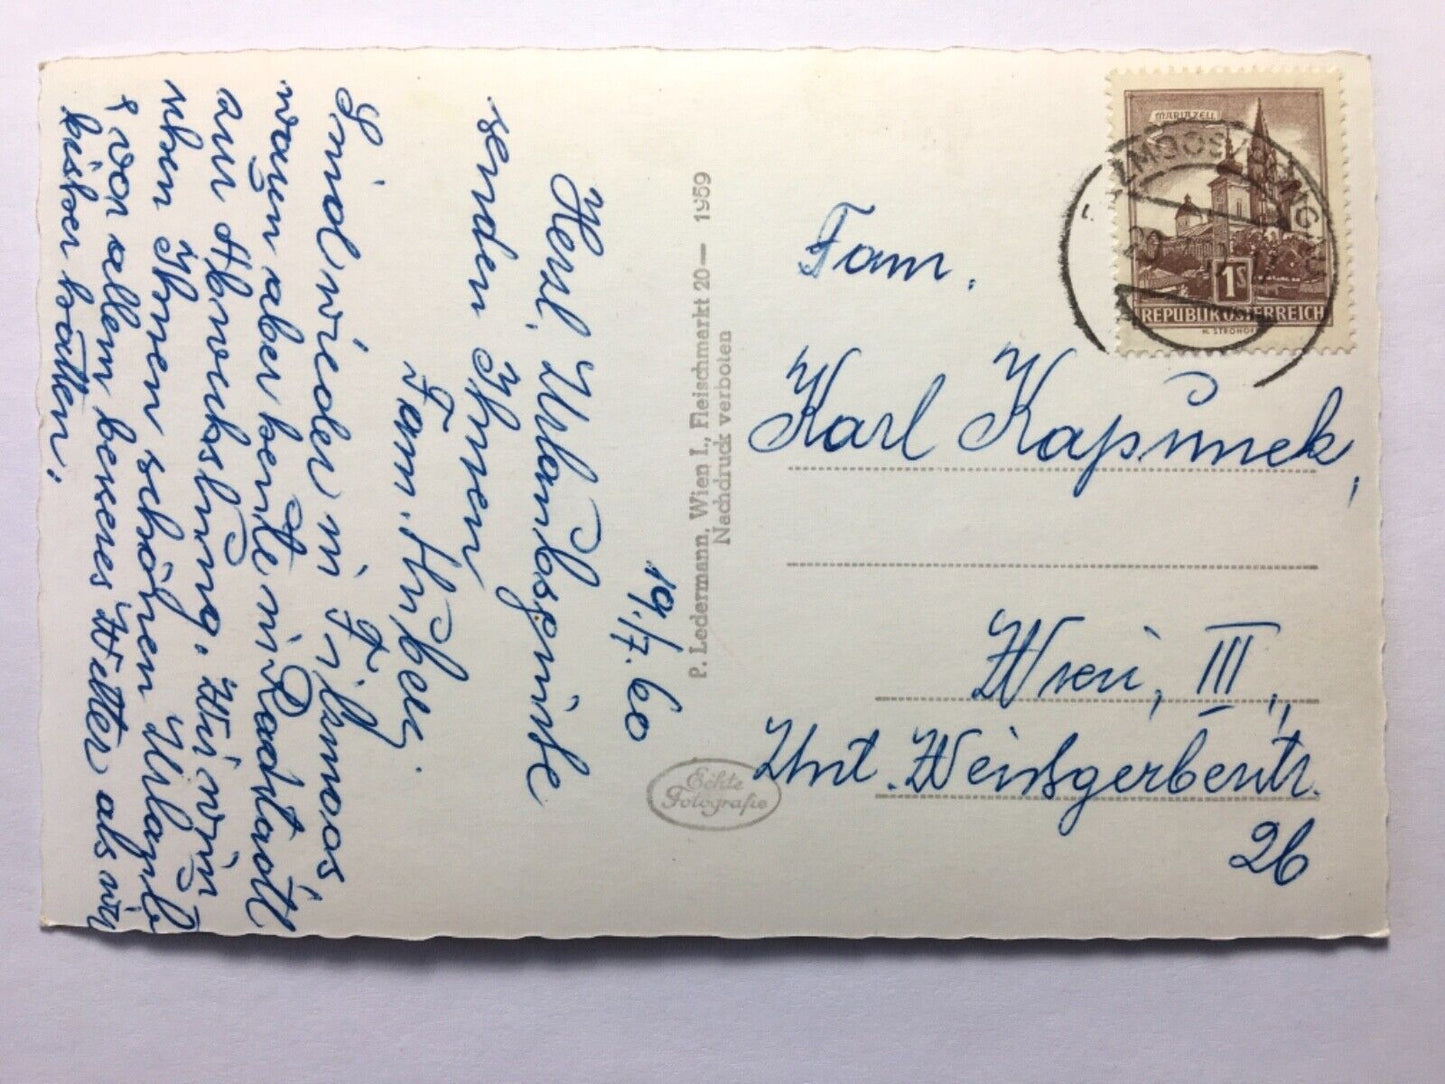 19./7. 60
Herzl. Urlaubsgrüße
senden Ihnen
Fam. Huber.
Sind wieder in Filzmoos,
waren aber heute in Radstadt
zur Abwechslung. Wir wün
schen Ihnen schönen Urlaub
& vor allem besseres Wetter als wir
bisher hatten.
P. Ledermann, Wien I., Fleischmarkt 20 — 1959
Nachdruck verboten
Echte
Fotografie
MARIAZELL
1S
REPUBLIK ÖSTERREICH
20
Fam.
Karl Kapunek,
Wien, III.,
Unt. Weißgerberstr.
26